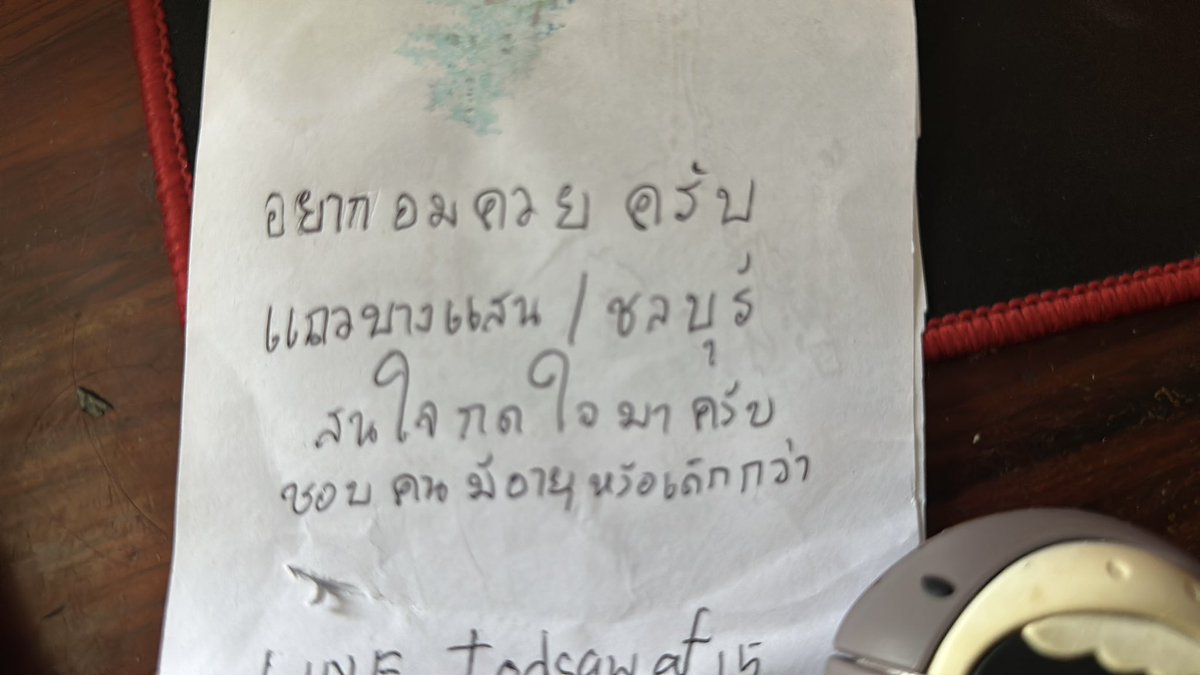 อยากอมควย ครับ
แถวบางแสน / ชลบุรี
สนใจกดใจมาครับ
ชอบ คนมีอายุหรือเด็กกว่า